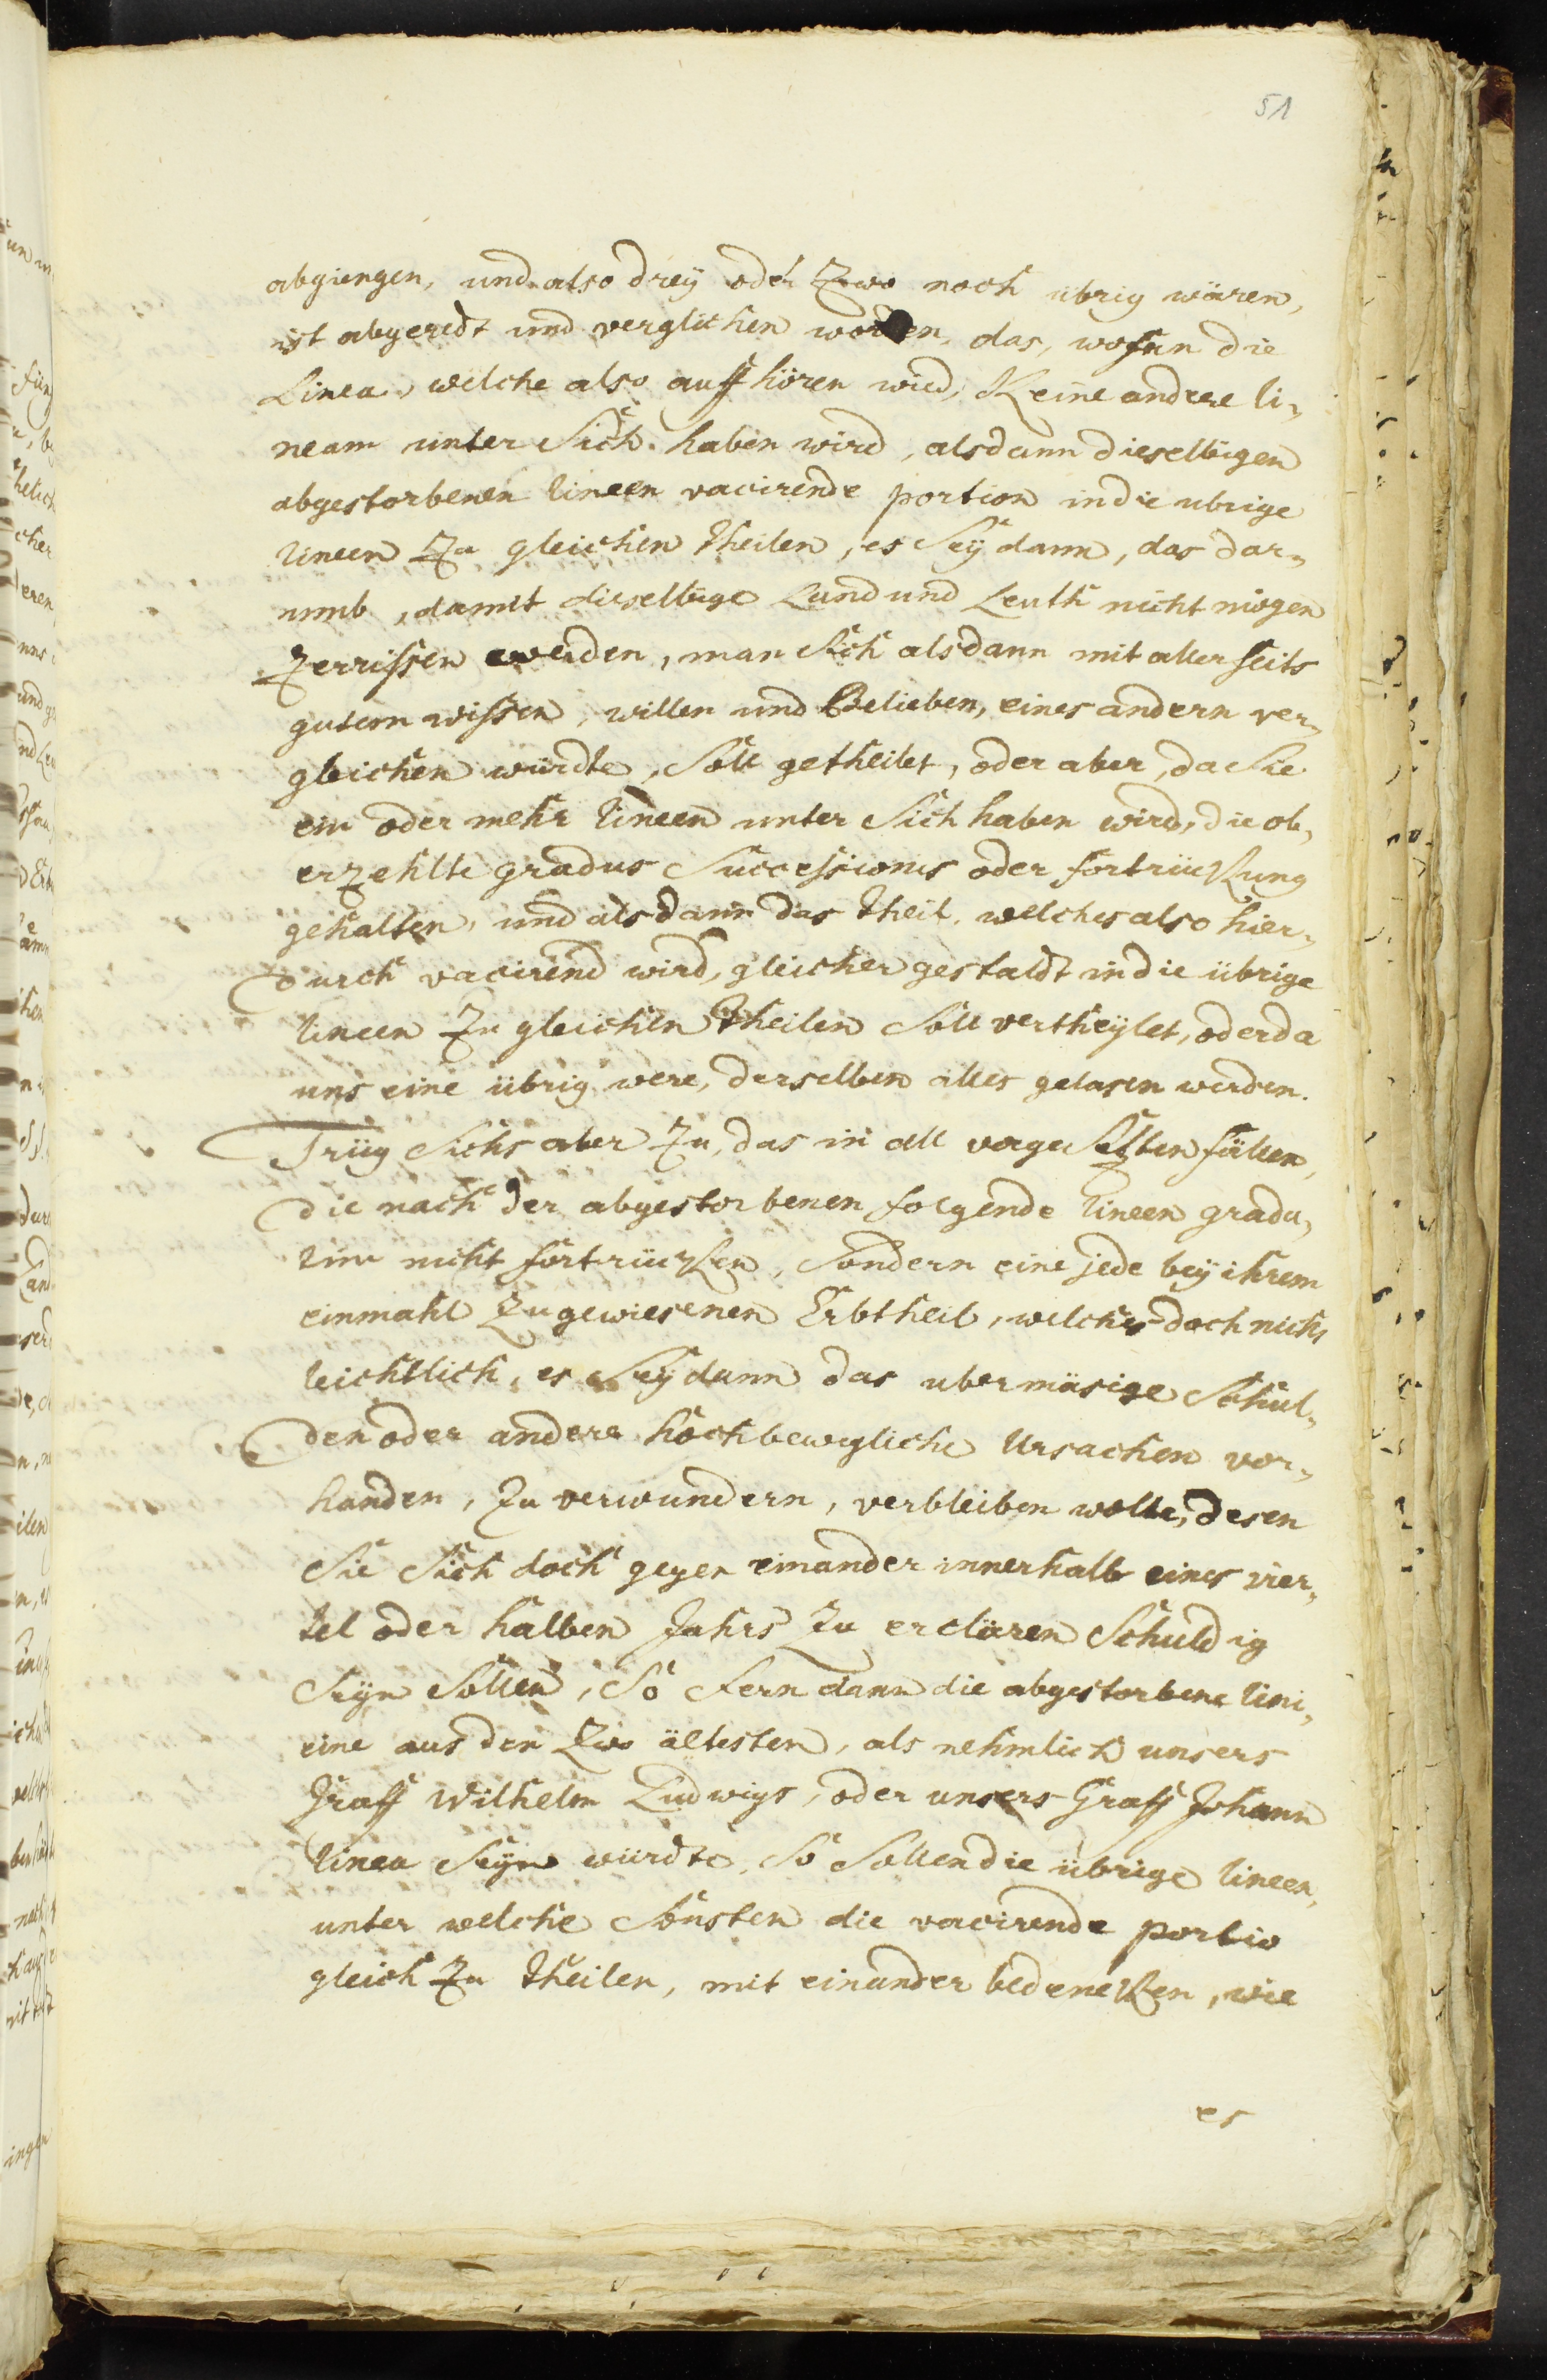 51
abgiengen, und also drey oder Zwo noch übrig wären,
ist abgeredt und verglichen worden, das, wofern die
Linea, welche also auff hören wird, Keine andere li„
neam unter Sich haben wird, alsdann dieselbigen
abgestorbenen lineen vacirende portion in die ubrige
lineen Zu gleichen theilen, es Sey dann, das dar„
umb, damit dieselbige Land und Leuth nicht mögen
Zerrissen werden, man Sich alsdann mit aller seits
gutem wissen, willen und Belieben, eines andern ver„
gleichen würdte, Soll getheilet, oder aber, da Sie
ein oder mehr lineen unter Sich haben wird, die ob„
erzehlte gradus Successionis oder fortrückung
gehalten, und alsdann das theil, welches also hier„
durch vacirend wird, gleicher gestaldt in die übrige
lineen Zu gleichen Theilen Soll vertheylet, oder da
uns eine übrig were, derselben alles gelasen werden.
Trüg Sichs aber Zu, das in all vorgesetzten fällen,
die nach der abgestorbenen folgende lineen gradu„
lim nicht fortrücken, Sondern eine jede bey ihrem
einmahl Zugewiesenen Erbtheil, welches doch nicht
leichtlich, es Sey dann das ubermäsige Schul„
den oder andere hochbewegliche Ursachen vor„
handen, Zu verwundern, verbleiben wolte, desen
Sie Sich doch gegen einander innerhalb eines vier„
tel oder halben Jahrs Zu erclären Schuldig
Seyn Sollen, So fern dann die abgestorbene lini„
eine aus den Zwo ältesten, als nehmlich unsers
Graff Wilhelm Ludwigs, oder unsers Graff Johann
linea Seyn würdte, So Sollen die übrige lineen,
unter welche Sonsten die vacirende portio
gleich Zu theilen, mit einander bedencken, wie
es